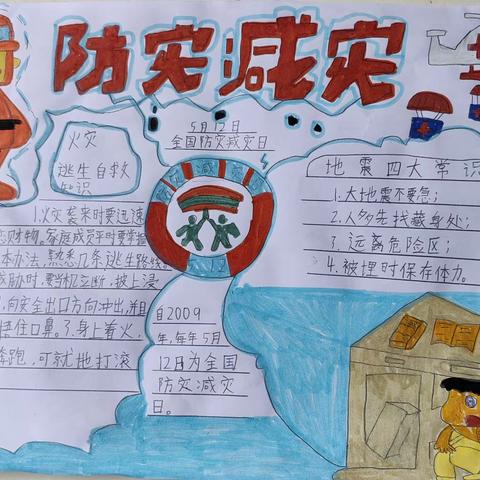 防灾减灾
5月12日
全国防灾减灾日
火灾
逃生自救
知识
1.火灾袭来时要迅速
恋财物。家庭成员平时要掌握
本办法,熟悉几条逃生路线。
威胁时,要当机立断,披上浸
向安全出口方向冲出,并且
捂住口鼻。3.身上着火,
奔跑,可就地打滚
防灾减灾
5.12
自2009
年,每年5月
12日为全国
防灾减灾
日。
地震四大常识
1.大地震不要急;
2.人多先找藏身处;
3.远离危险区;
4.被埋时保存体力。